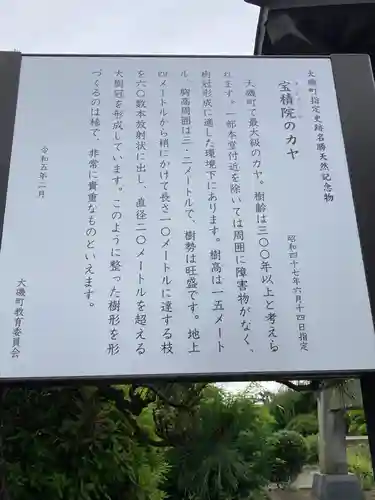 大磯町指定史跡名勝天然記念物
宝積院のカヤ
昭和四十七年六月十四日指定
大磯町で最大級のカヤ。樹齢は三〇〇年以上と考えら
れます。一部本堂付近を除いては周囲に障害物がなく、
樹冠形成に適した環境下にあります。樹高は一五メート
ル、胸高周囲は三・二メートルで、樹勢は旺盛です。地上
四メートルから梢にかけて長さ一〇メートルに達する枝
を六〇数本放射状に出し、直径二〇メートルを超える
大樹冠を形成しています。このように整った樹形を形
づくるのは稀で、非常に貴重なものといえます。
令和五年二月
大磯町教育委員会